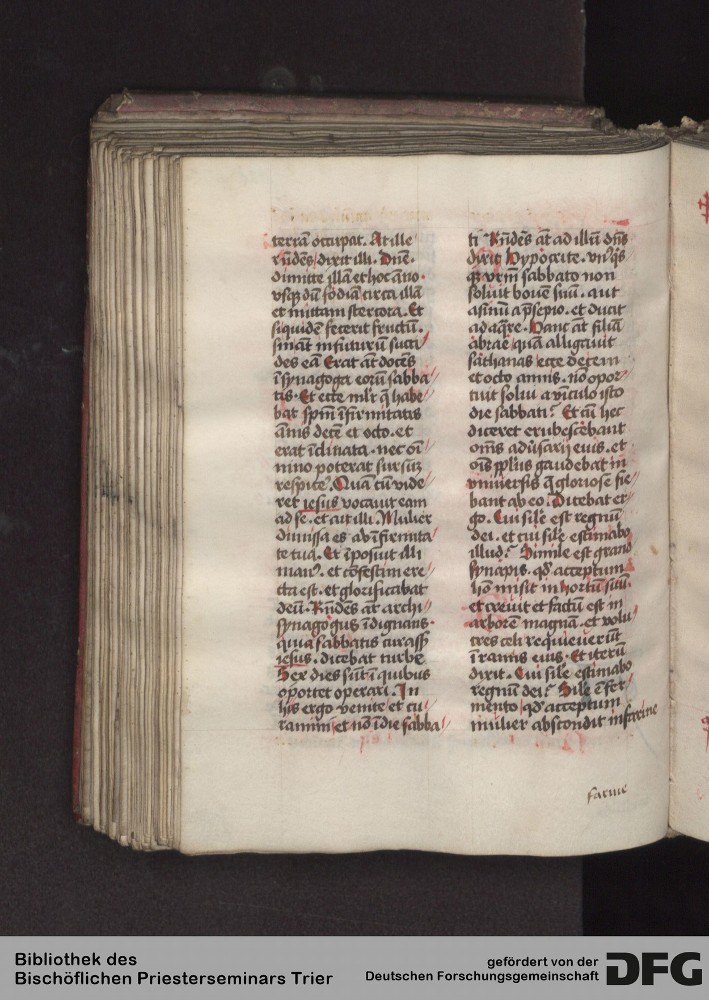 terrā occupat. At ille
rn̄dēs dixit illi. Dn̄e.
dimitte illā et hoc āno.
vsq̢ dū fodiā circa illā
et mittam stercora. Et
siquidē fecerit fructū.
sin āt in futurū succi
des eā Erat āt docēs
ī synagoga eorū sabba
tis. Et ecce ml'r q̄ habe
bat spm̄ īfirmitatis
ānis decē et octo. et
erat īclinata. nec oī
nino poterat sursuꝫ
respice'. Quā cū vide
ret iesus vocauit eam
ad se. et ait illi. Mulier
dimissa es ab īfirmita
te tua. Et īposuit illi
man⁹. et cōfestim ere
cta est. et glorificabat
deū. Rn̄dēs āt archi
synagogus īdignans.
quia sabbatis curass̄
iesus. dicebat turbe
Sex dies sūt ī quibus
oportet operari. In
his ergo venite et cu
ramini et nō ī die sabba
ti Rn̄dēs āt ad illū dn̄s
dixit Hypocrite. vn⁹q̢s
q̢ vrm̄ sabbato non
soluit bouē suū. aut
asinū a p̄sepio. et ducit
ad aq̄re. Hanc āt filiā
abrae quā alligauit
sathanas ecce decem
et octo annis. nō opor
tuit solui a vīculo isto
die sabbati? Et cū hec
diceret erubescebant
om̄s aduersarij eius. et
oīs pplūs gaudebat in
vniuersis q̄ gloriose fie
bant ab eo. Dicebat er
go. Cui sile est regnū
dei. et cui sile estimabo
illud? Simile est grano
synapis. qd̄ acceptum
hō misit in hortū suū.
et creuit et factū est in
arborē magnā. et volu
cres celi requieuerūt
ī ramis eius. Et iterū
dixit. Cui sile estimabo
regnū dei? Sile ē fer
mento qd̄ acceptum
mulier abscondit in farine
farine
Bibliothek des
Bischöflichen Priesterseminars Trier
gefördert von der
Deutschen Forschungsgemeinschaft
DFG